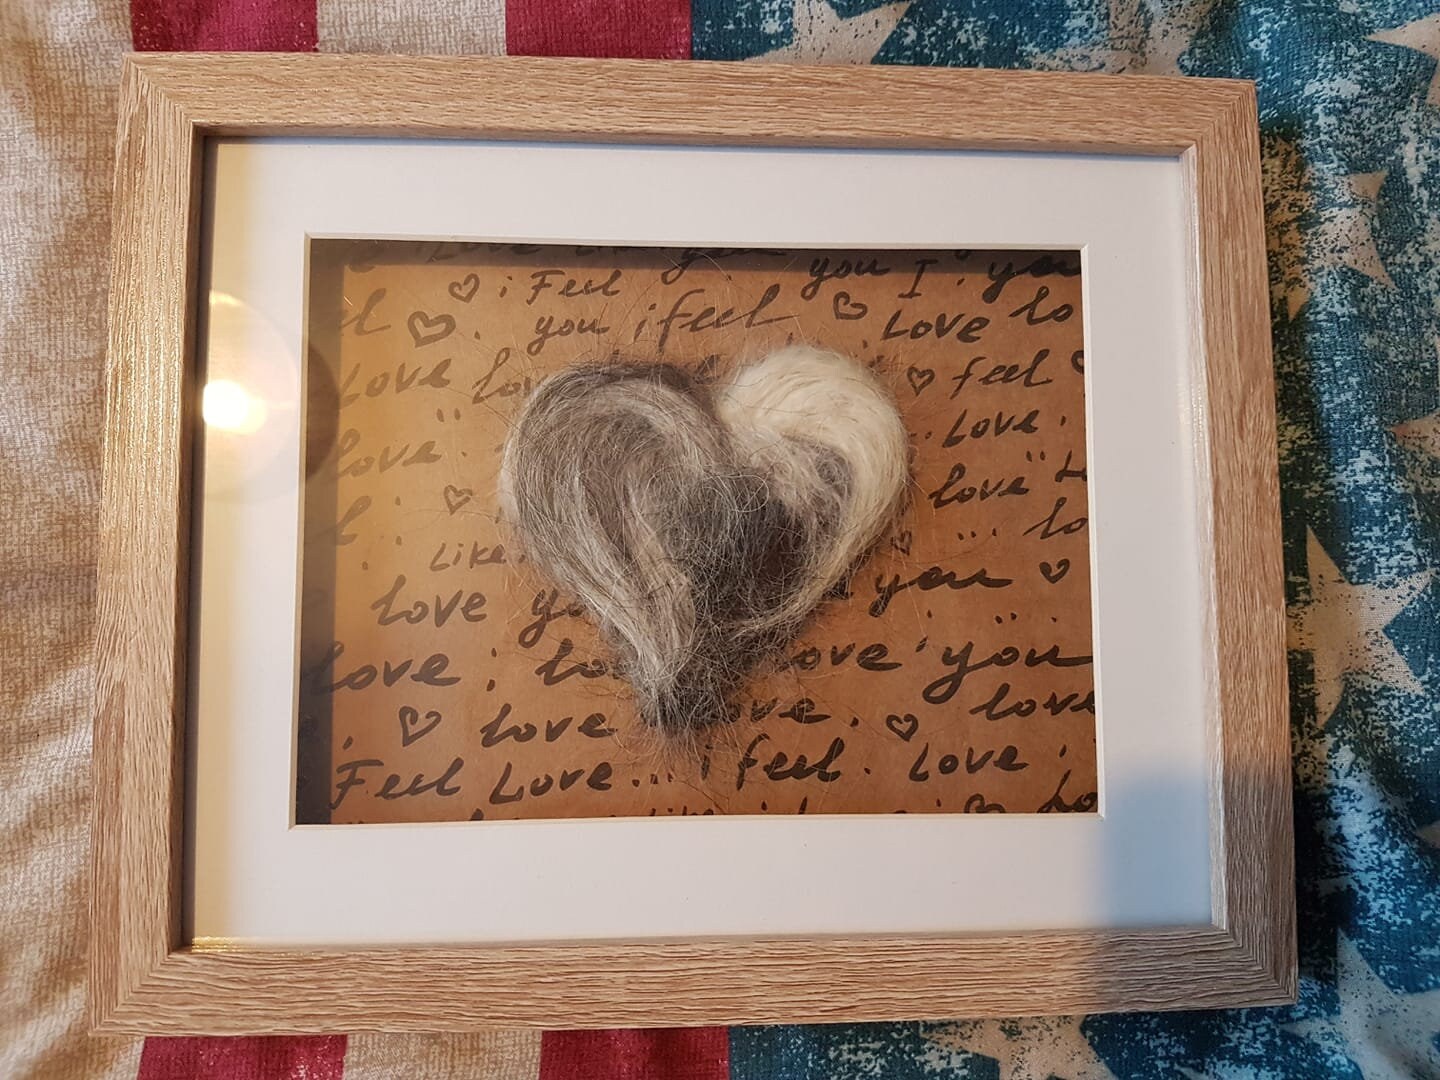 you I you
♡ ; Feel
el ♡ . you i feel ♡ . Love lo
Love ♡ feel ♡
Love . Love .
♡ love
. Like . ♡ ... lo
love you you ♡
Love ; love you
; ♡ love . ♡ love
Feel Love... i feel . Love ;